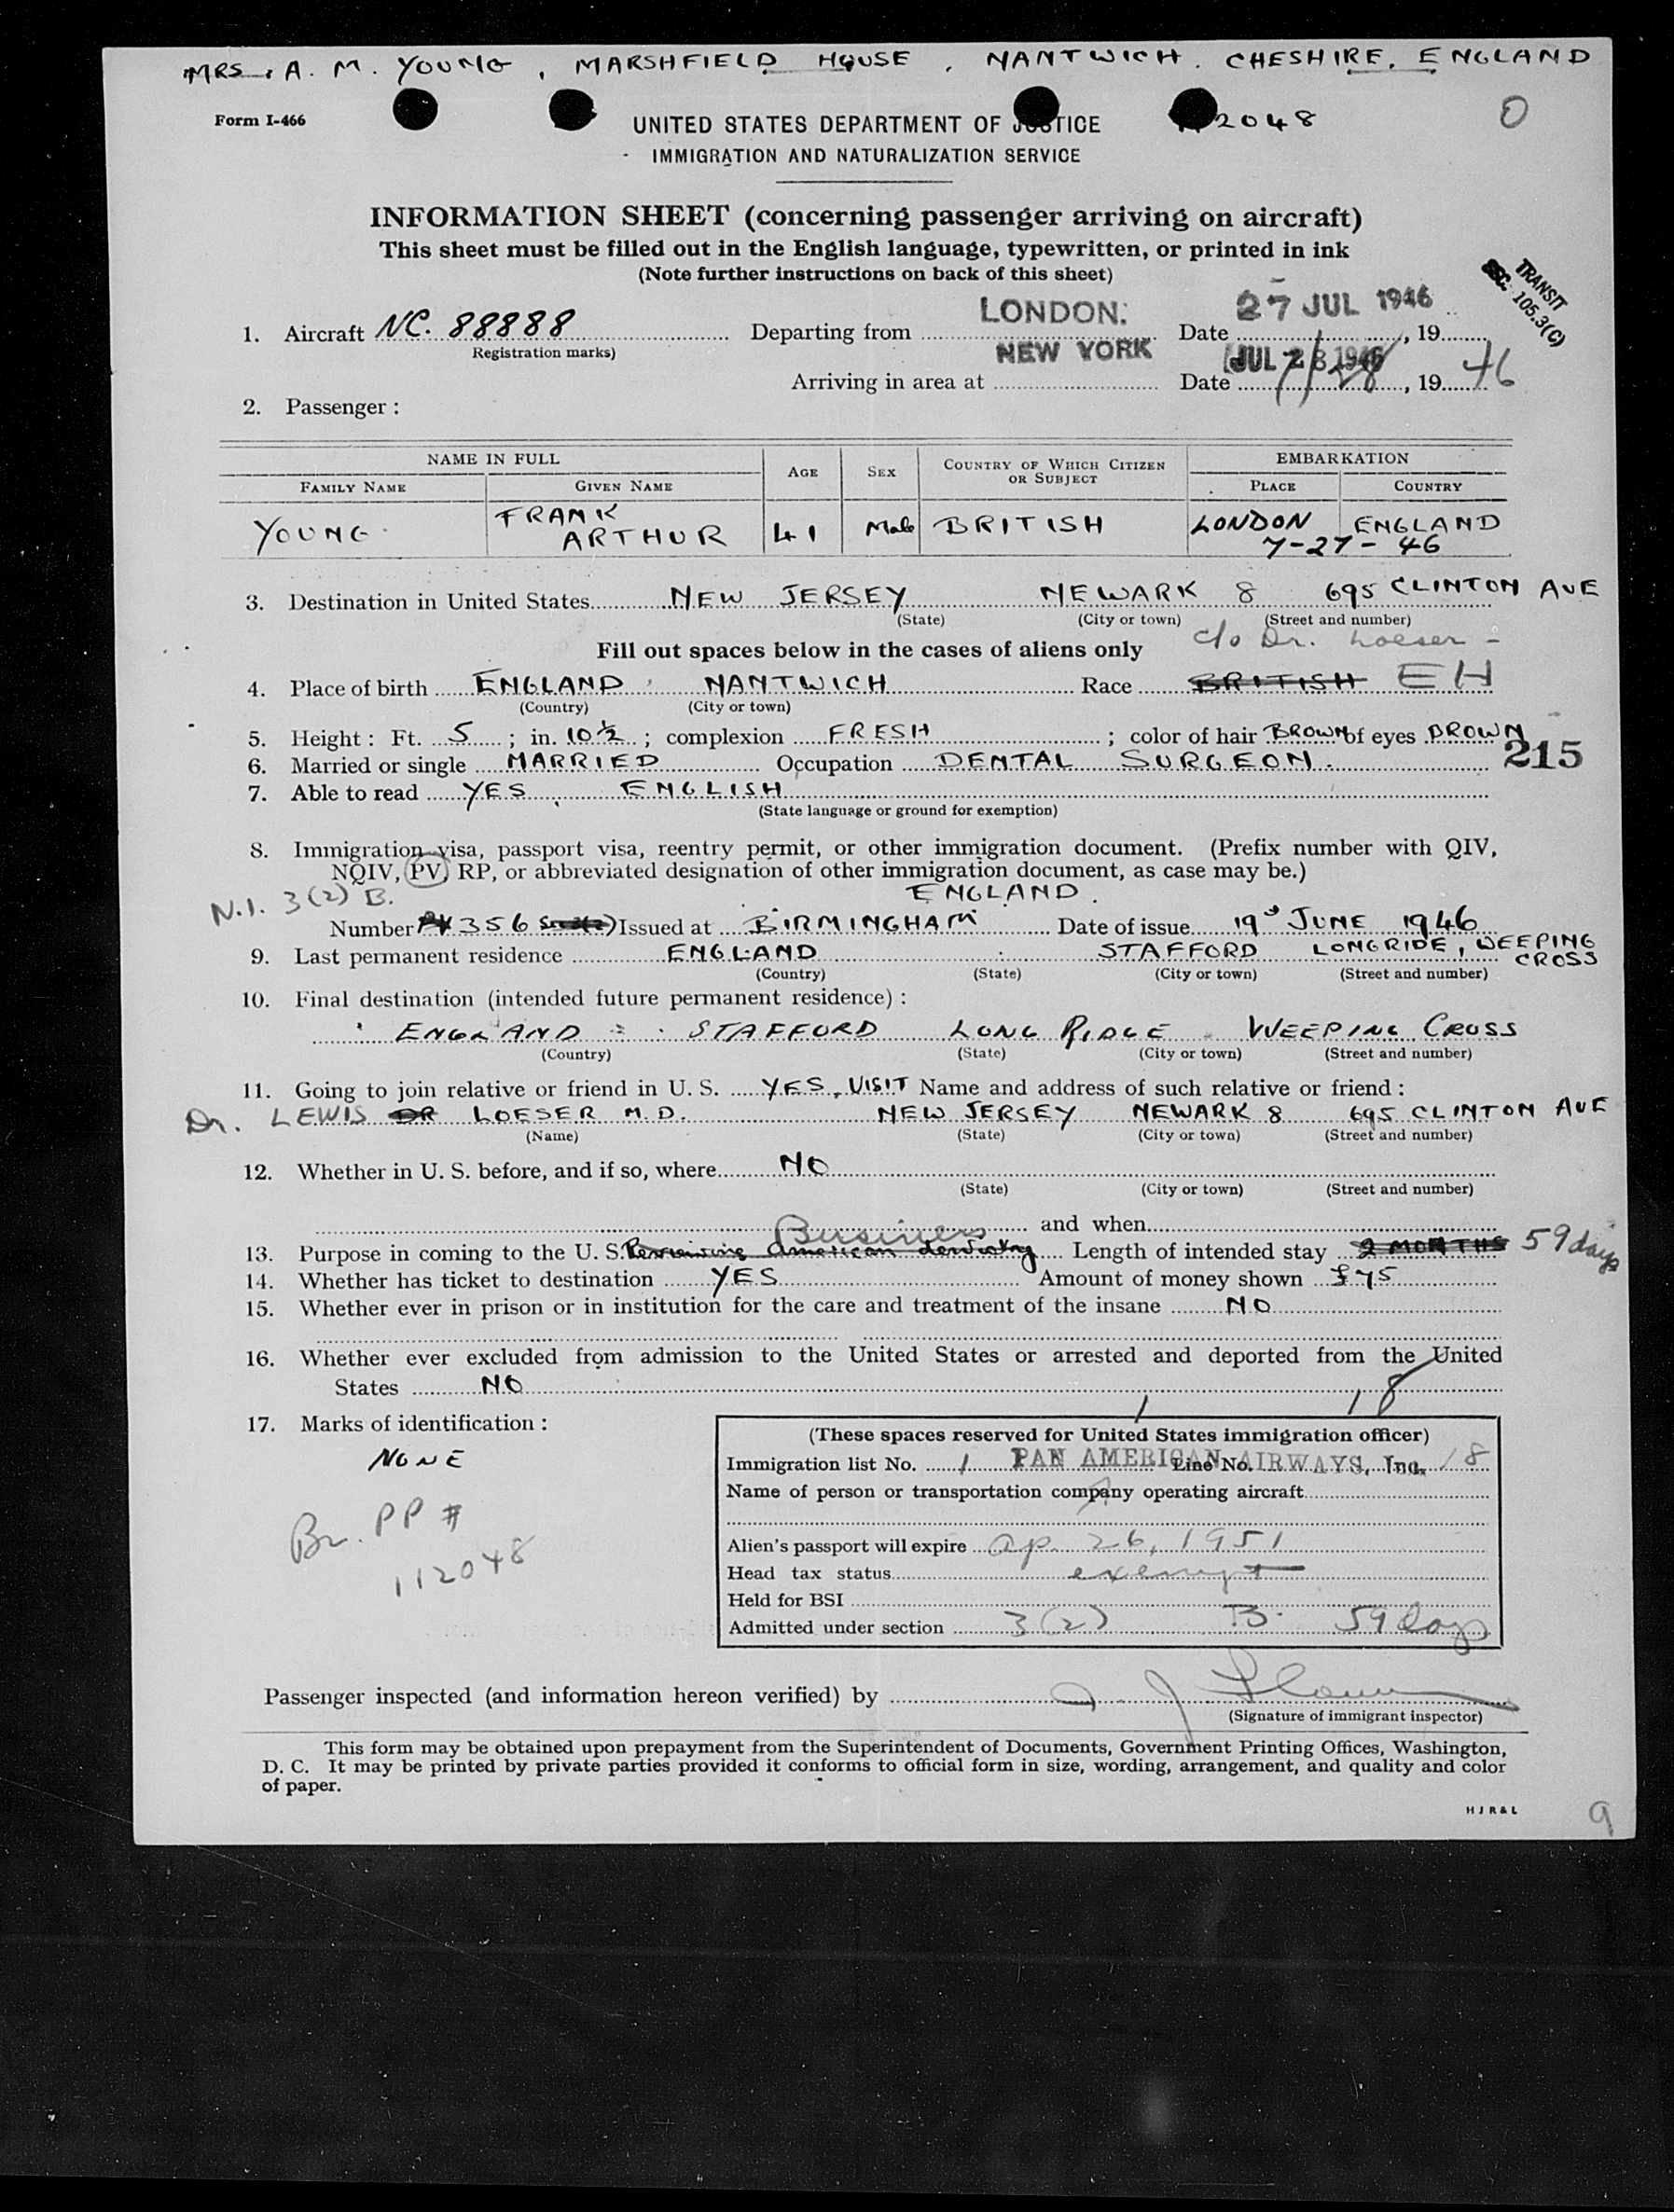 MRS. A. M. YOUNG, MARSHFIELD HOUSE, NANTWICH. CHESHIRE. ENGLAND
Form I-466
UNITED STATES DEPARTMENT OF JUSTICE
2048
0
IMMIGRATION AND NATURALIZATION SERVICE
INFORMATION SHEET (concerning passenger arriving on aircraft)
This sheet must be filled out in the English language, typewritten, or printed in ink
(Note further instructions on back of this sheet)
TRANSIT
SEC. 105.3(C)
LONDON. 27 JUL 1946
1. Aircraft NC. 88888 Departing from Date , 19
Registration marks)
NEW YORK JUL 28 1946
Arriving in area at Date 7/28, 1946
2. Passenger :
NAME IN FULL AGE SEX COUNTRY OF WHICH CITIZEN OR SUBJECT EMBARKATION
FAMILY NAME GIVEN NAME PLACE COUNTRY
YOUNG FRANK ARTHUR 41 Male BRITISH LONDON ENGLAND
7-27-46
3. Destination in United States NEW JERSEY NEWARK 8 695 CLINTON AVE
(State) (City or town) (Street and number)
c/o Dr. Loeser -
Fill out spaces below in the cases of aliens only
4. Place of birth ENGLAND NANTWICH Race BRITISH EH
(Country) (City or town)
5. Height : Ft. 5 ; in. 10½ ; complexion FRESH ; color of hair BROWN of eyes BROWN
215
6. Married or single MARRIED Occupation DENTAL SURGEON.
7. Able to read YES, ENGLISH
(State language or ground for exemption)
8. Immigration visa, passport visa, reentry permit, or other immigration document. (Prefix number with QIV,
NQIV, PV, RP, or abbreviated designation of other immigration document, as case may be.)
N.I. 3(2) B.
ENGLAND.
Number PV 356 Issued at BIRMINGHAM Date of issue 19 JUNE 1946
9. Last permanent residence ENGLAND STAFFORD LONGRIDE, WEEPING CROSS
(Country) (State) (City or town) (Street and number)
10. Final destination (intended future permanent residence) :
ENGLAND STAFFORD LONG RIDGE WEEPING CROSS
(Country) (State) (City or town) (Street and number)
11. Going to join relative or friend in U. S. YES, VISIT Name and address of such relative or friend :
Dr. LEWIS DR LOESER M.D. NEW JERSEY NEWARK 8 695 CLINTON AVE
(Name) (State) (City or town) (Street and number)
12. Whether in U. S. before, and if so, where NO
(State) (City or town) (Street and number)
and when
Business
13. Purpose in coming to the U. S. Reviewing American dentistry Length of intended stay 2 MONTHS 59 days
14. Whether has ticket to destination YES Amount of money shown £75
15. Whether ever in prison or in institution for the care and treatment of the insane NO
16. Whether ever excluded from admission to the United States or arrested and deported from the United
States NO
1 18
17. Marks of identification :
NONE
Br. PP #
112048
(These spaces reserved for United States immigration officer)
Immigration list No. 1 Line No. 18
PAN AMERICAN AIRWAYS, Inc.
Name of person or transportation company operating aircraft
Alien's passport will expire Ap. 26, 1951
Head tax status exempt
Held for BSI
Admitted under section 3(2) B. 59 days
Passenger inspected (and information hereon verified) by
(Signature of immigrant inspector)
This form may be obtained upon prepayment from the Superintendent of Documents, Government Printing Offices, Washington,
D. C. It may be printed by private parties provided it conforms to official form in size, wording, arrangement, and quality and color
of paper.
H J R & L
9